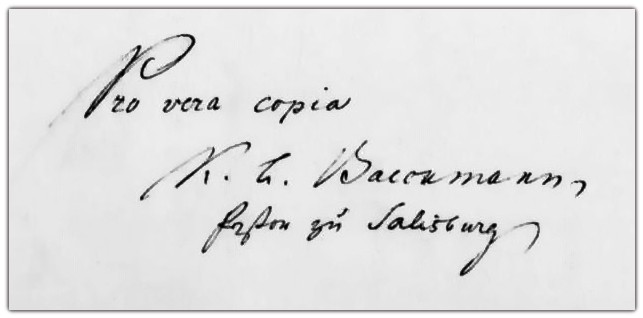 Pro vera copia
K. L. Backmann,
Pastor zu Salisburg